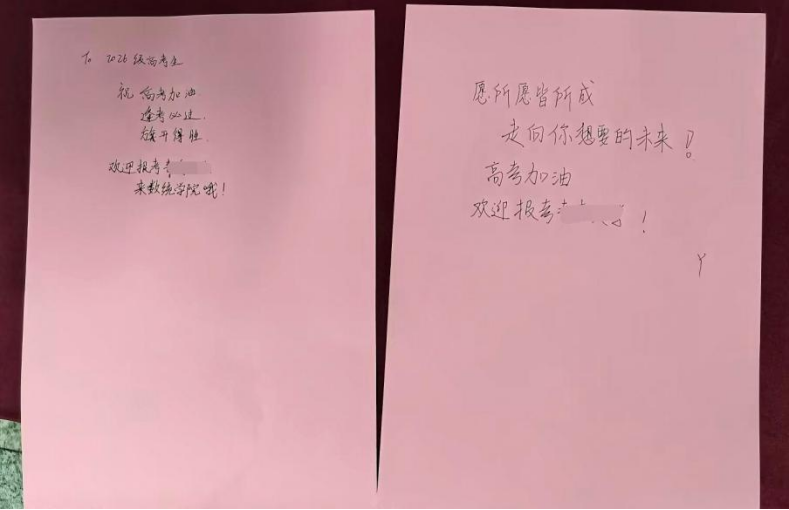 To 2025级高考生
祝 高考加油
逢考必过
旗开得胜
欢迎报考
来数统学院哦！
愿所愿皆所成
走向你想要的未来！
高考加油
欢迎报考！
Y